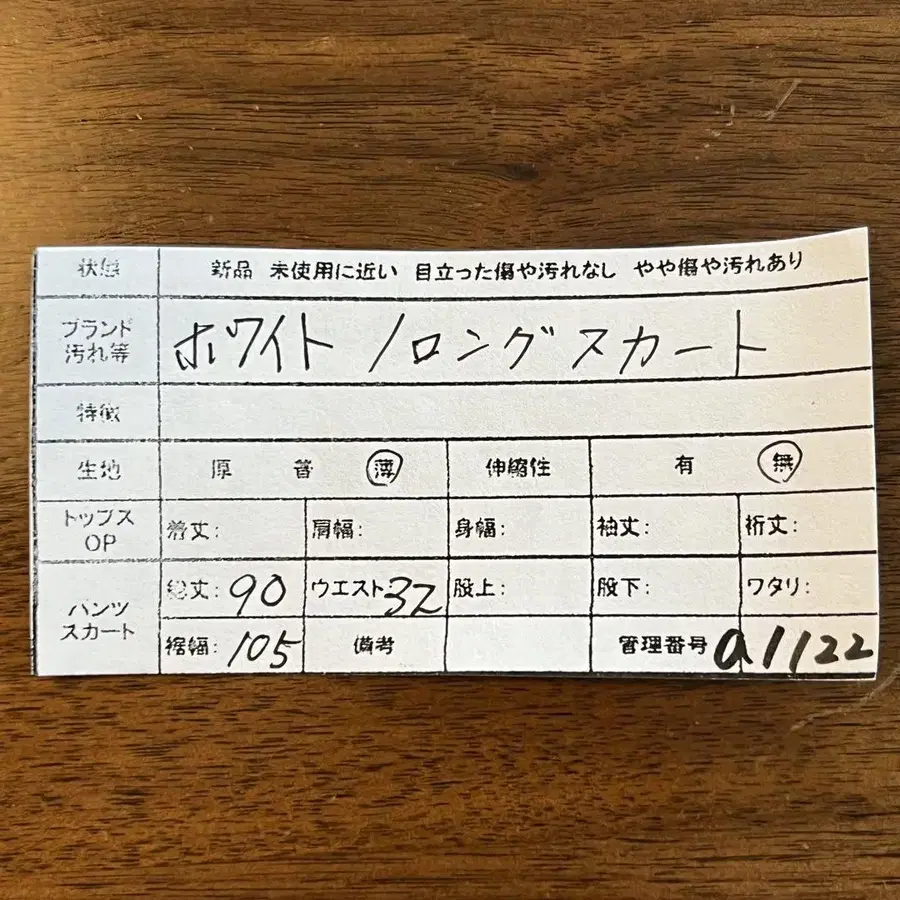 状態 新品 未使用に近い 目立った傷や汚れなし やや傷や汚れあり
ブランド
汚れ等
ホワイト/ロングスカート
特徴
生地 厚 普 薄 伸縮性 有 無
トップス
OP
着丈: 肩幅: 身幅: 袖丈: 裄丈:
パンツ
スカート
総丈:90 ウエスト32 股上: 股下: ワタリ:
裾幅:105 備考 管理番号 a1122